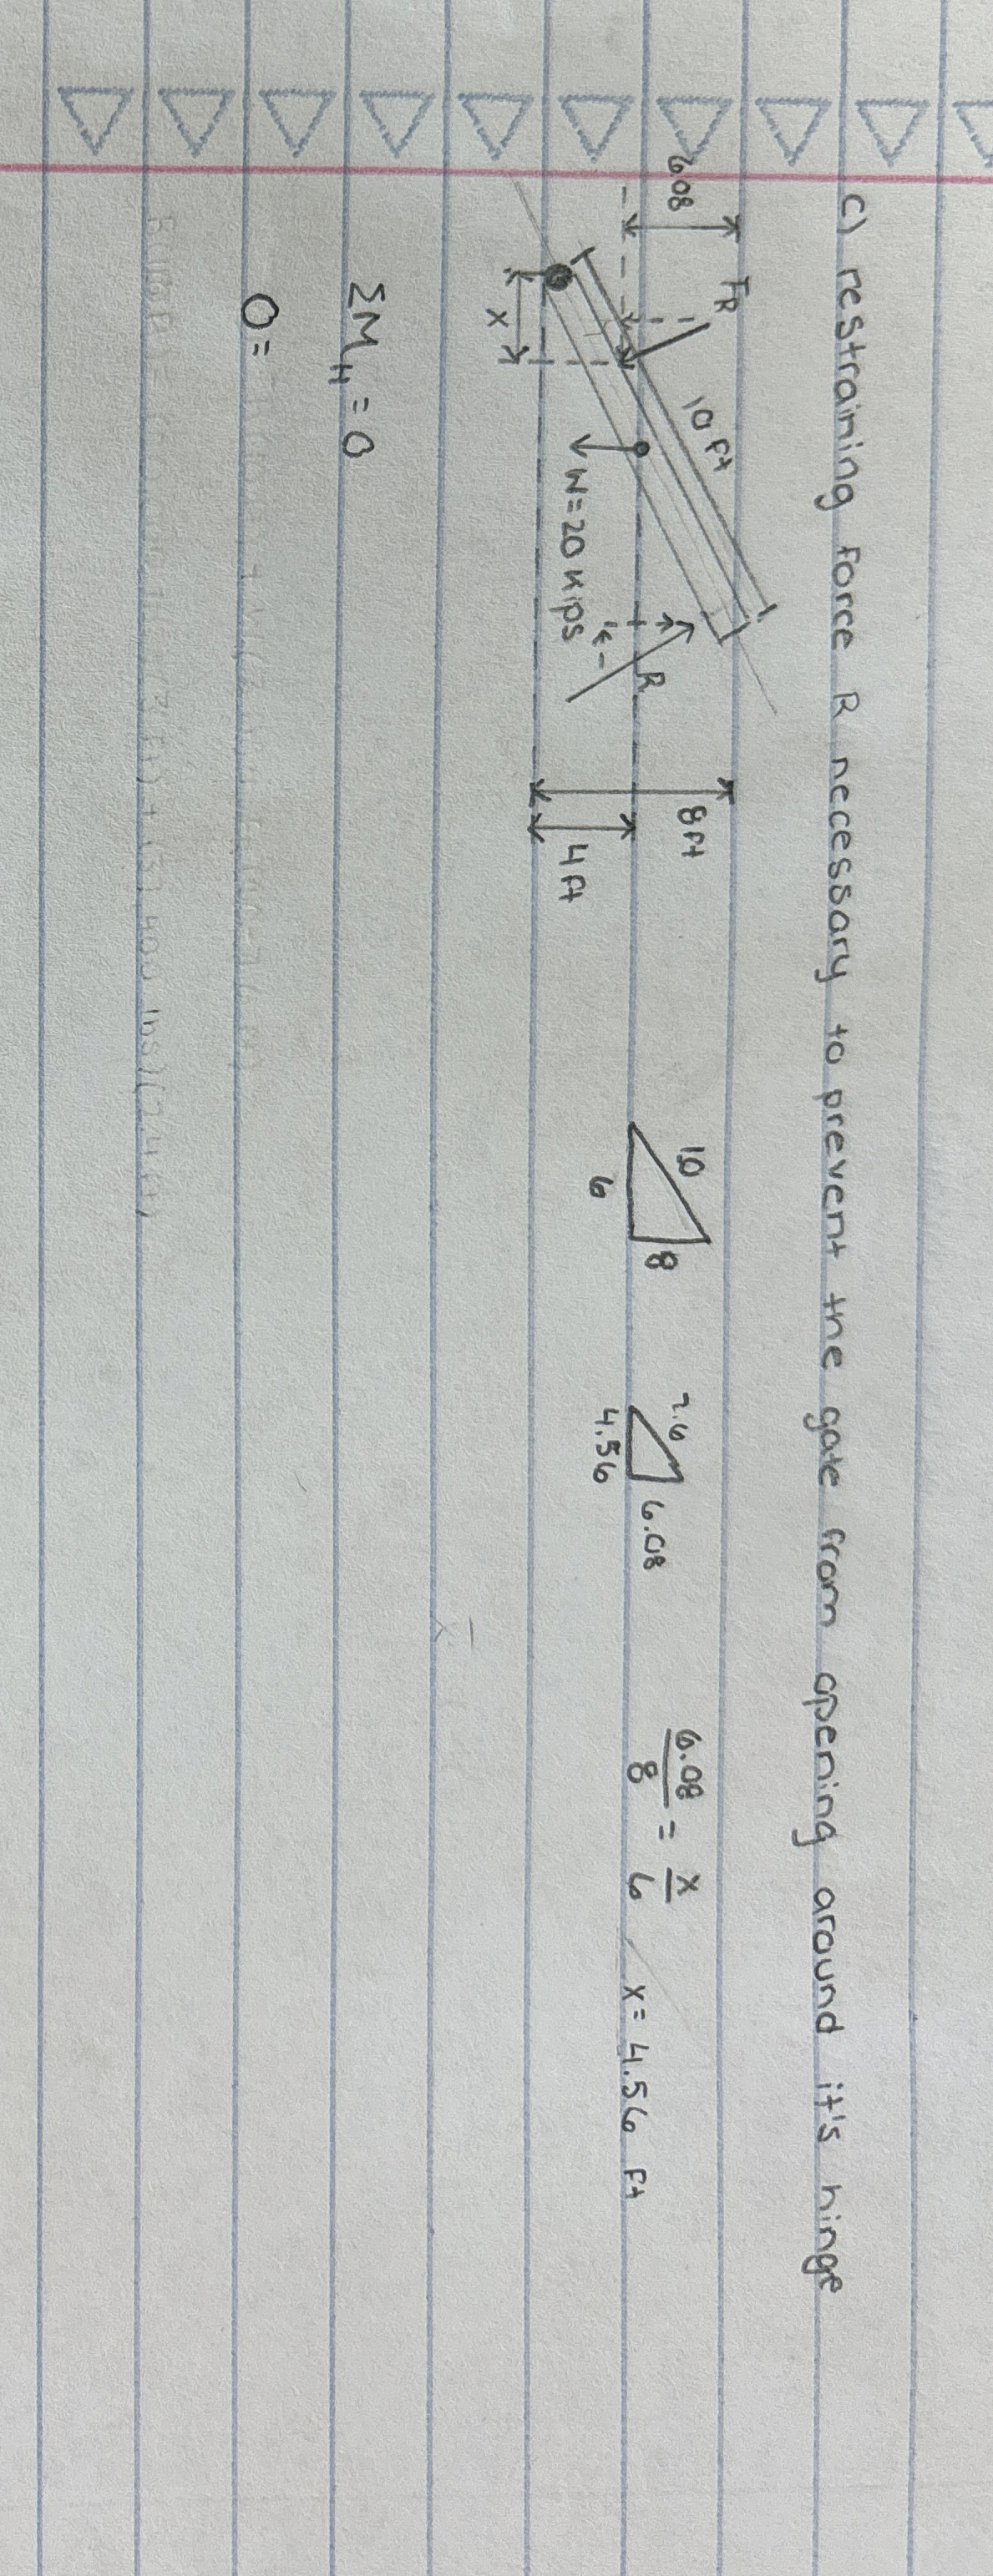 C) restraining force R necessary to prevent the gate from opening around it's hinge
6.08
FR
10 ft
W=20 kips
R
x
8 ft
4 ft
10
8
6
7.6
6.08
4.56
6.08/8 = x/6 x= 4.56 ft
ΣM_H = 0
0=